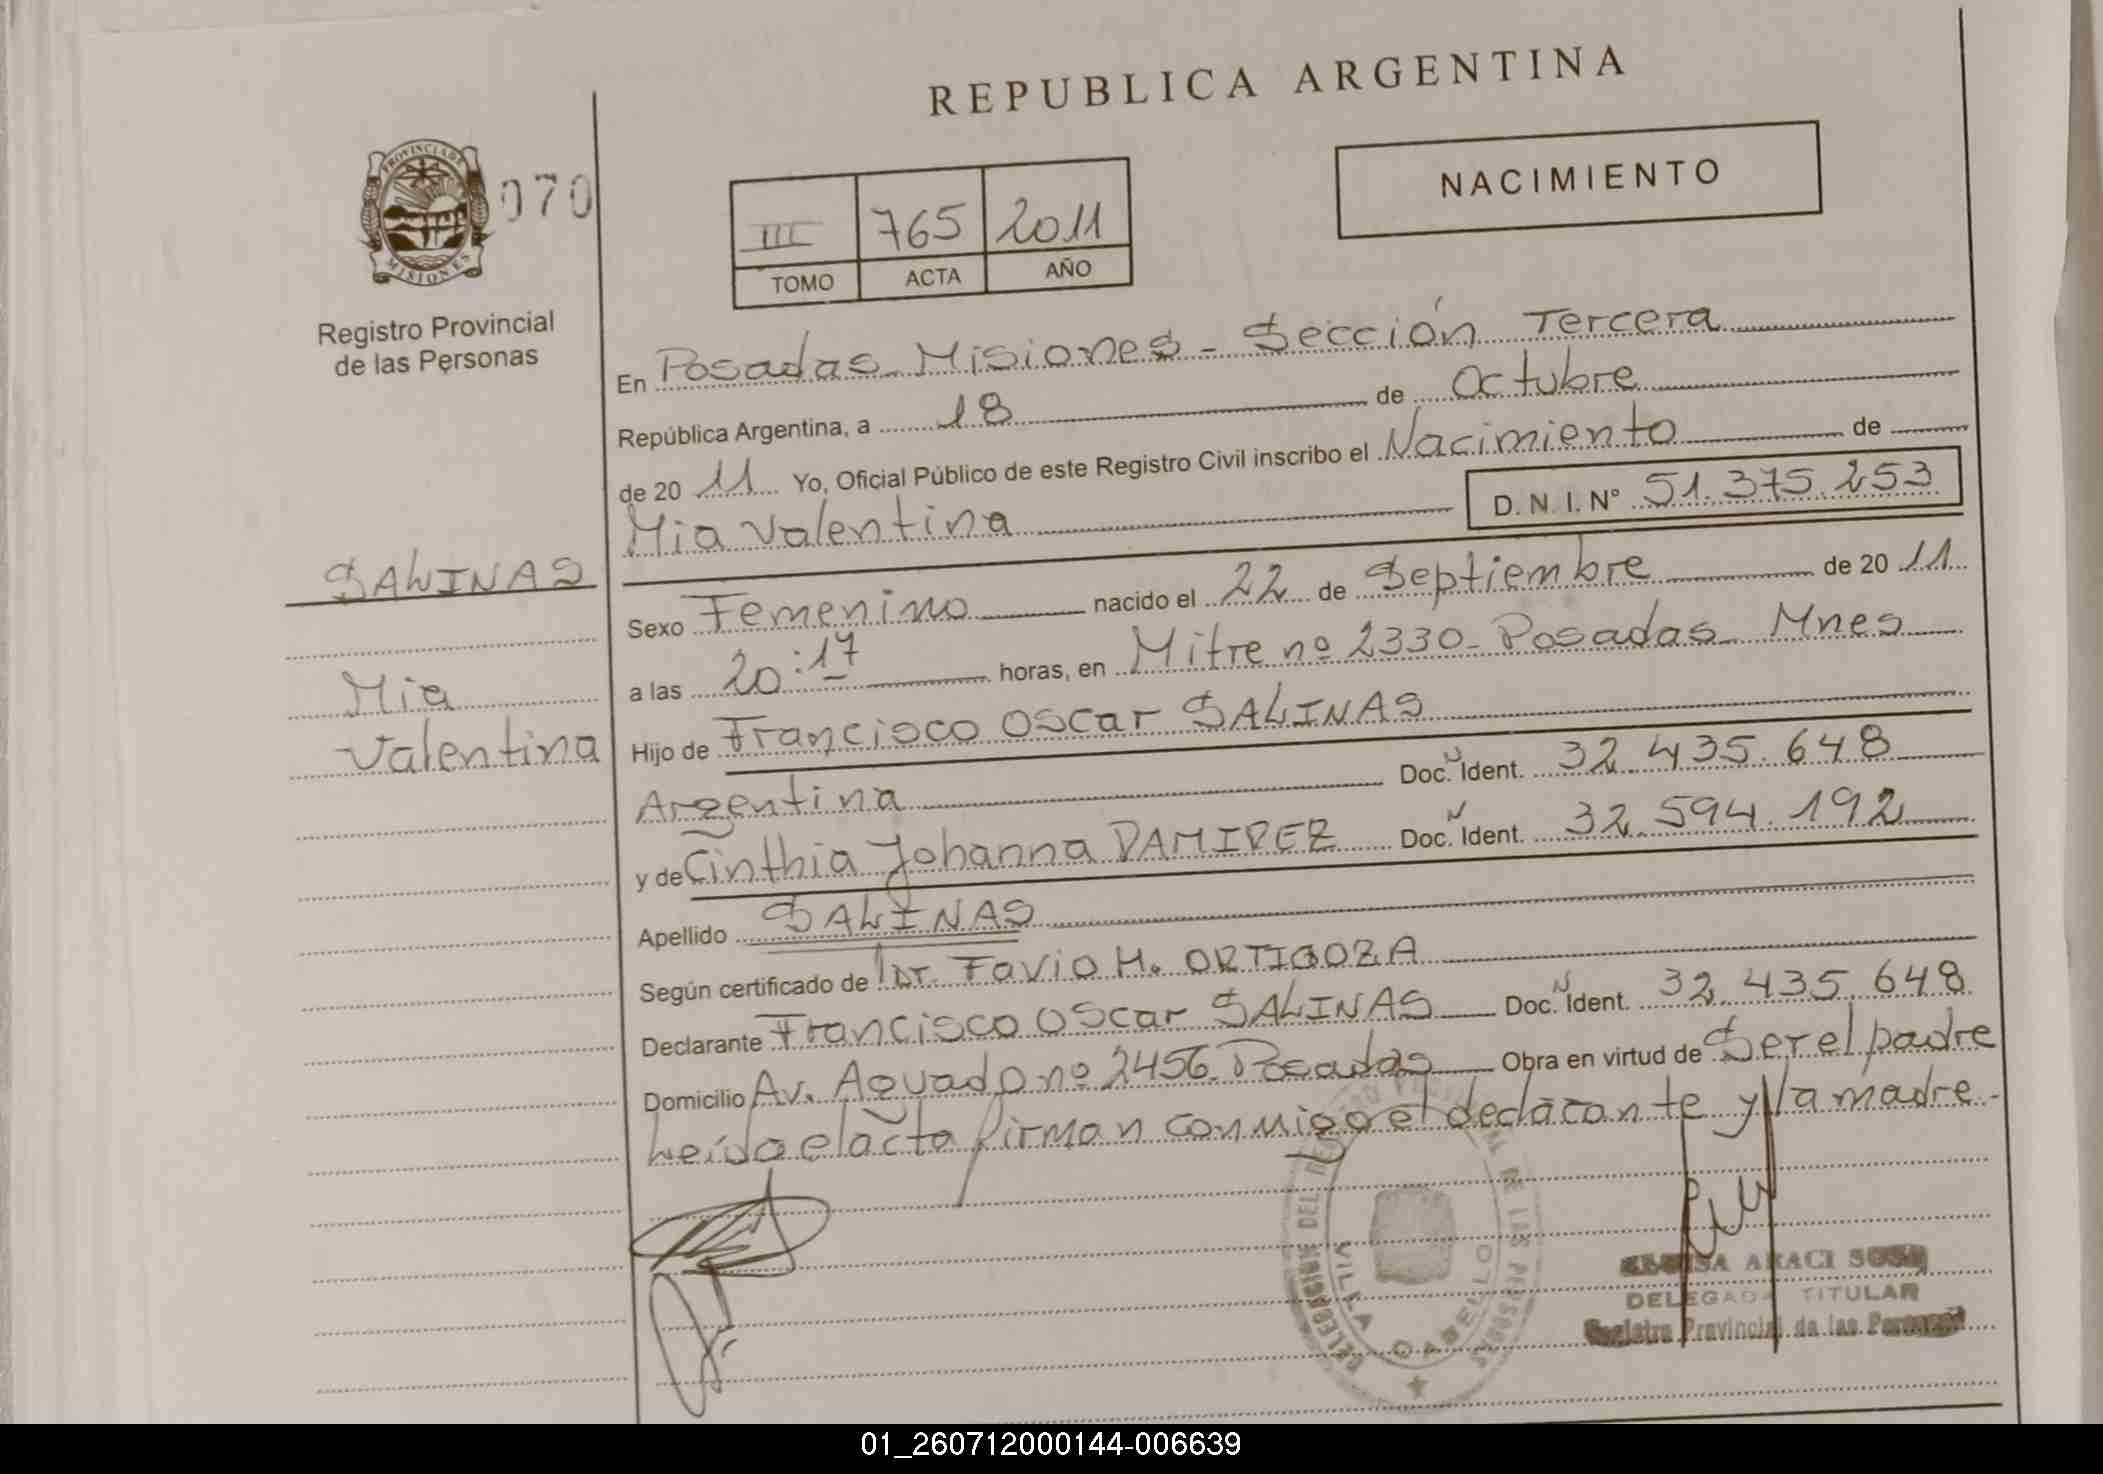 REPUBLICA ARGENTINA
PROVINCIA DE
MISIONES
070
Registro Provincial
de las Personas
NACIMIENTO
III 765 2011
TOMO ACTA AÑO
En Posadas Misiones - Sección Tercera
República Argentina, a 18 de Octubre
de 20 11 Yo, Oficial Público de este Registro Civil inscribo el Nacimiento de
Mia Valentina D.N.I. Nº 51.375.253
SALINAS
Mia
Valentina
Sexo Femenino nacido el 22 de Septiembre de 20 11
a las 20:17 horas, en Mitre nº 2330 - Posadas - Mnes
Hijo de Francisco Oscar SALINAS
Argentina Doc. Ident. 32.435.648
y de Cinthia Johanna RAMIREZ Doc. Ident. 32.594.192
Apellido SALINAS
Según certificado de Dr. Favio H. ORTIGOZA
Declarante Francisco Oscar SALINAS Doc. Ident. 32.435.648
Domicilio Av. Aguado nº 2456 Posadas Obra en virtud de Ser el padre
Leída el acta firman conmigo el declarante y la madre -
ARACI
DELEGADA TITULAR
Registro Provincial de las Personas
01_260712000144-006639